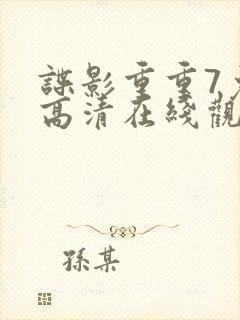 諜影重重7
高清在綫觀
孫某